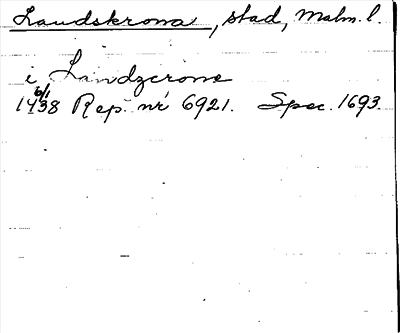 Landskrona, stad, Malm. l.
i Landzcrone
6/1
1438 Rep. nr 6921. Spec. 1693.